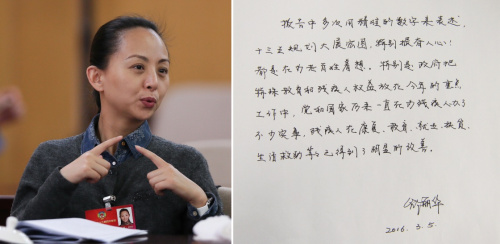 报告中多次间精准的数字来表述，
十三五规划大展宏图，特别振奋人心！
都是在为老百姓着想。特别是政府把
特殊教育和残疾人权益放在今年的重点
工作中，党和国家历来一直在为残疾人办了
不少实事，残疾人在康复、教育、就业、扶贫、
生活救助等已得到了明显的改善。
邰丽华
2016. 3. 5.